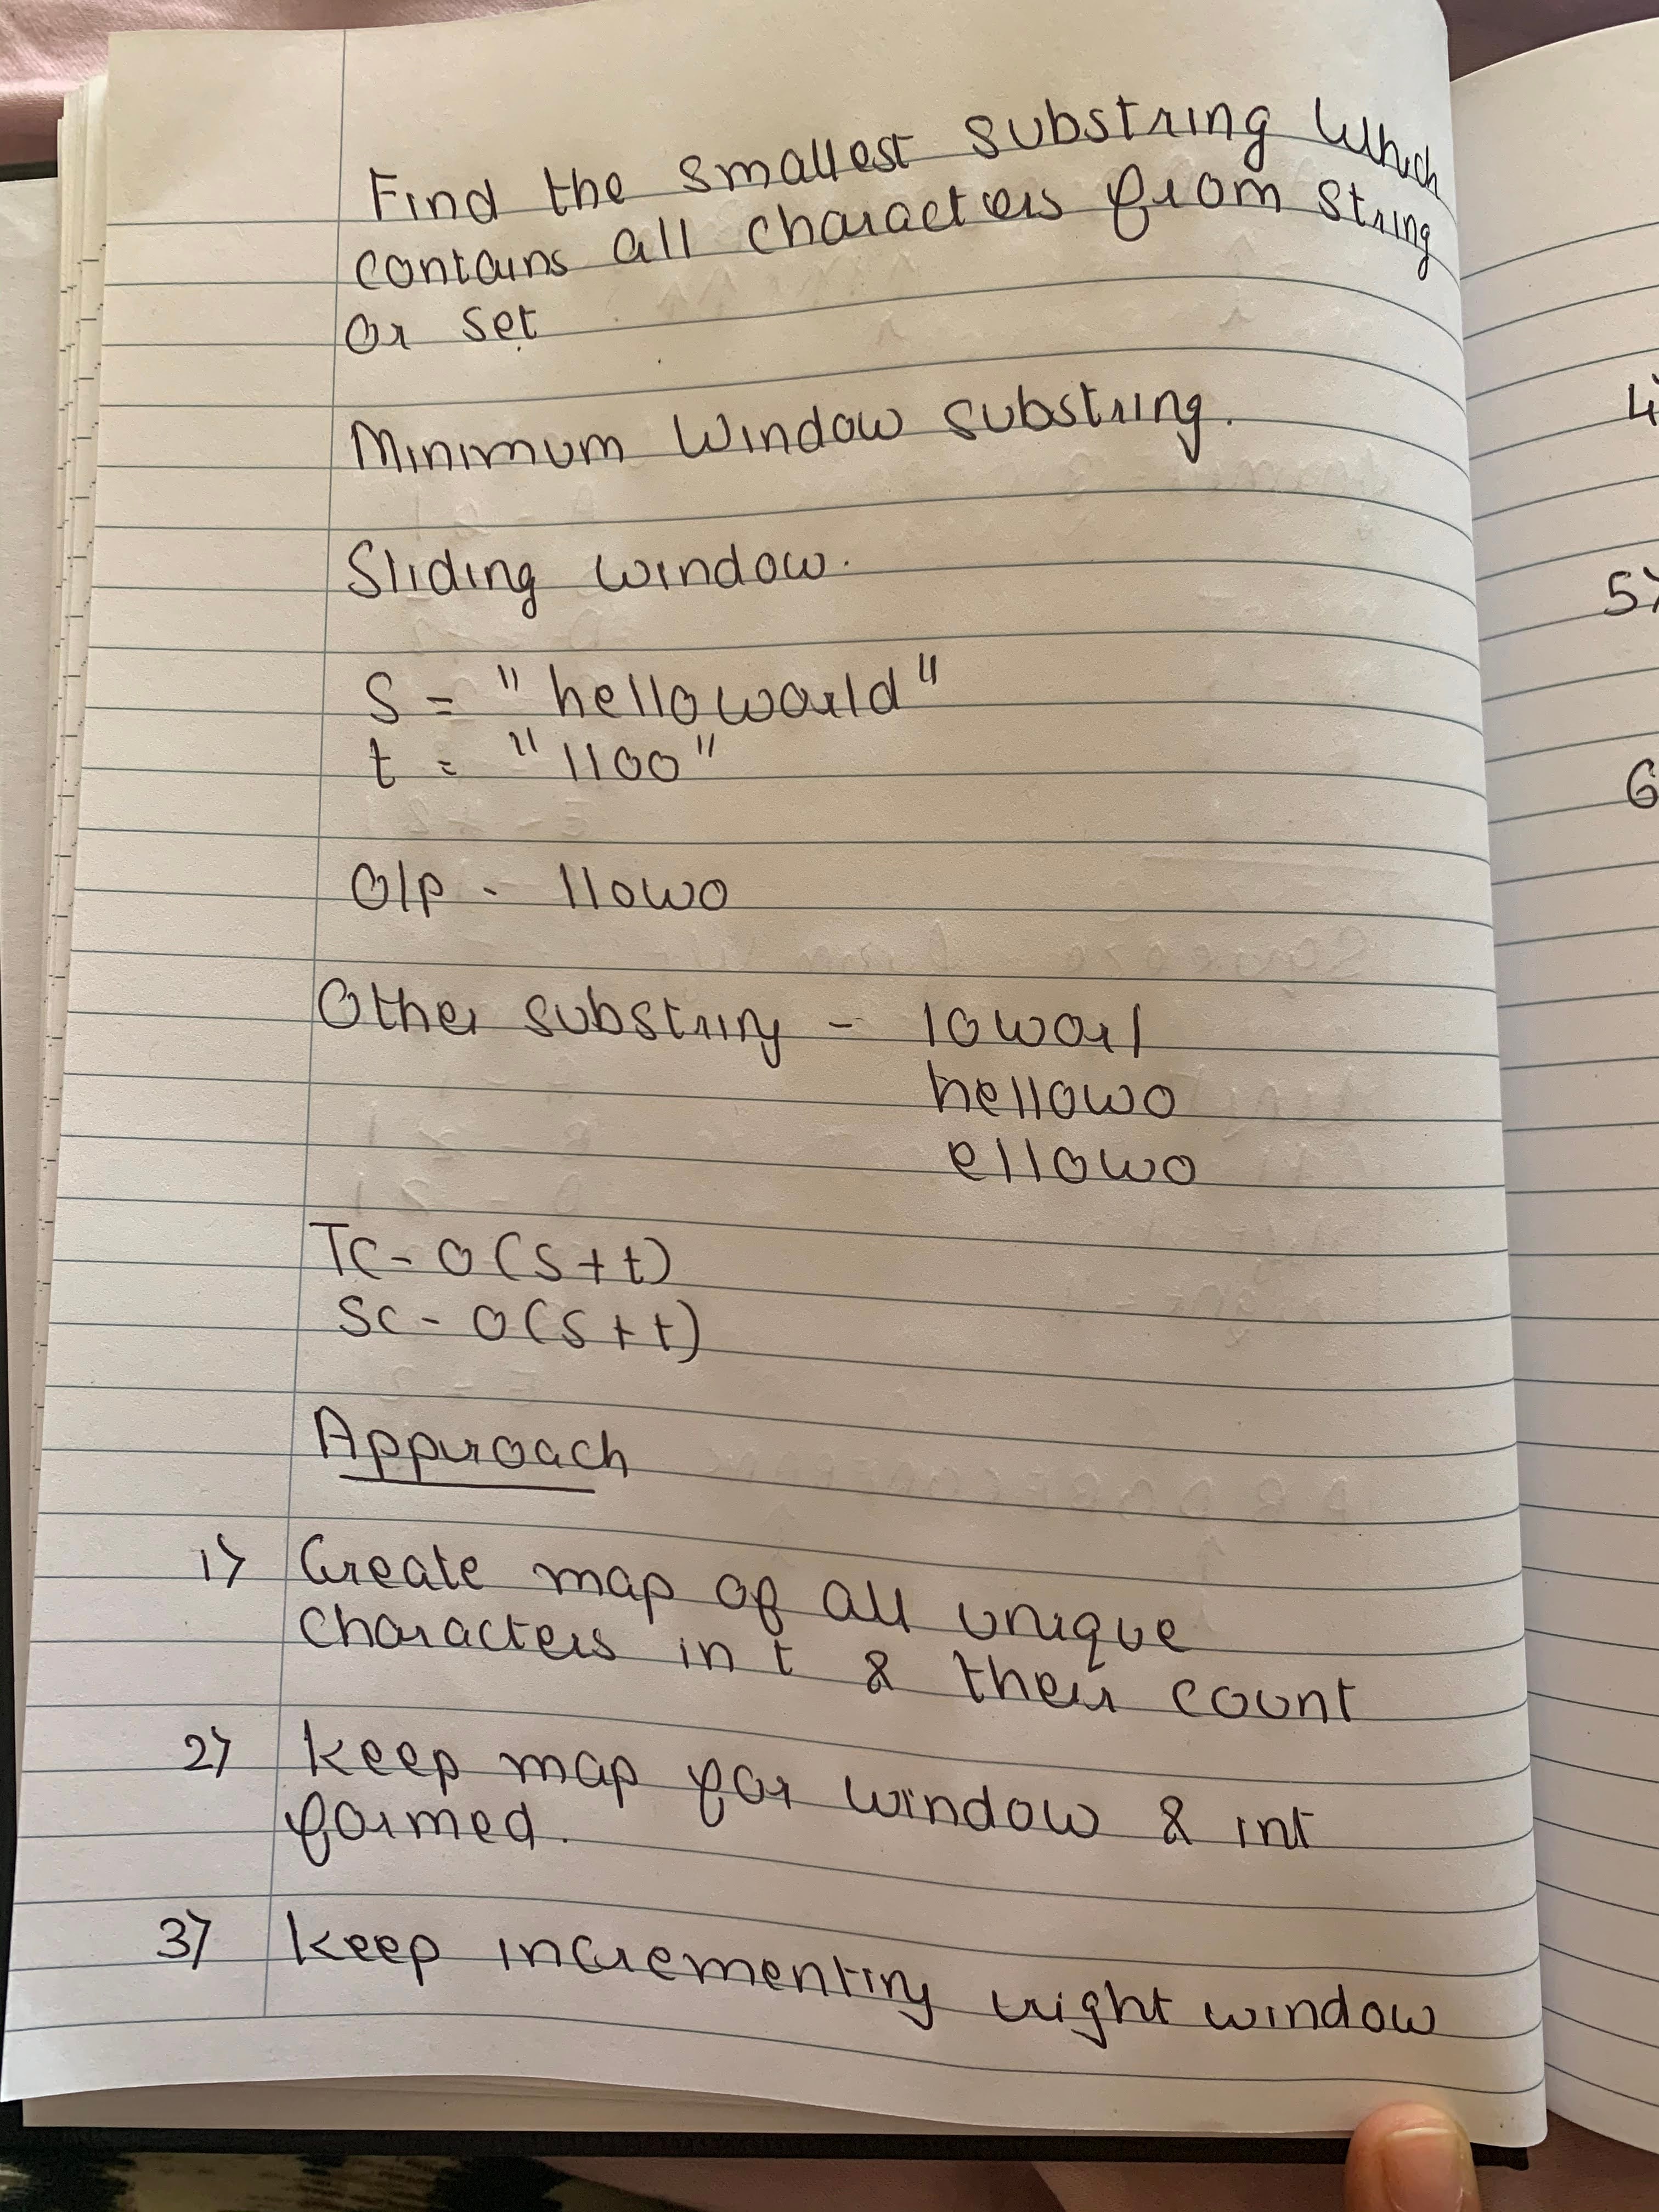 Find the smallest substring which
contains all characters from string
or set
Minimum Window substring.
Sliding window.
S = "helloworld"
t = "lloo"
O/p - llowo
Other substring - loworl
hellowo
ellowo
TC - O(S+t)
SC - O(S+t)
Approach
1) Create map of all unique
characters in t & their count
2) keep map for window & int
formed.
3) keep incrementing right window
4)
5)
6